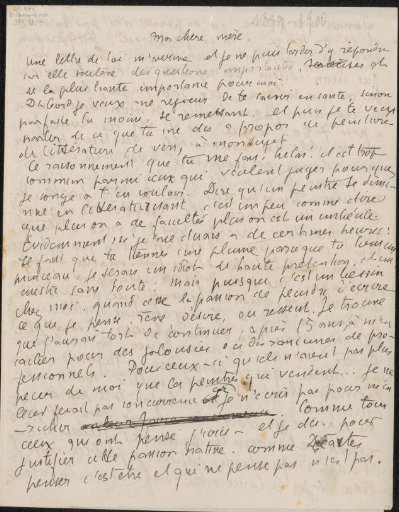 1899-1900
Ma chère mère.
une lettre de toi m'arrive et je ne puis tarder d'y répondre
car elle soulève des questions importantes
de la plus haute importance pour moi.
D'abord je veux me réjouir de te savoir en santé, sinon
parfaite, du moins, se remettant. et puis je te veux
parler de ce que tu me dis à propos de peinture
de littérature de vers, à mon sujet
Ce raisonnement que tu me fais, hélas! il est trop
commun parmi ceux qui veulent juger pour que
je songe à t'en vouloir. Dire qu'un peintre se dimi-
nue en littératurisant, c'est un peu comme dire
que plus on a de facultés plus on est un imbécile.
Evidemment si je me disais à de certines heures:
Il faut que tu tiennes une plume parce que tu tiens un
pinceau, je serais un idiot de haute prétention, et un
cuistre sans doute; mais puisque c'est un besoin
chez moi, quand cesse la passion de peindre d'écrire
ce que je pense rêve désire, ou ressent, je trouve
que j'aurais tort de continuer, après 15 ans, à m'en
cacher pour des jalousies ou des rancunes de pro-
fessionnels. Pour ceux-ci qu'ils n'aient pas plus
peur de moi que les peintres qui vendent... je ne
leur ferai pas concurrence et je n'écris pas pour m'en-
richir Comme tous
ceux qui ont pensé j'écris - et je dis, pour
justifier cette passion native. comme Descartes
penser c'est être et qui ne pense pas n'est pas.